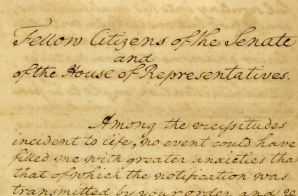 Fellow Citizens of the Senate
and
of the House of Representatives.
Among the vicissitudes
incident to life, no event could have
filled me with greater anxieties than
that of which the notification was
transmitted by your order, and re